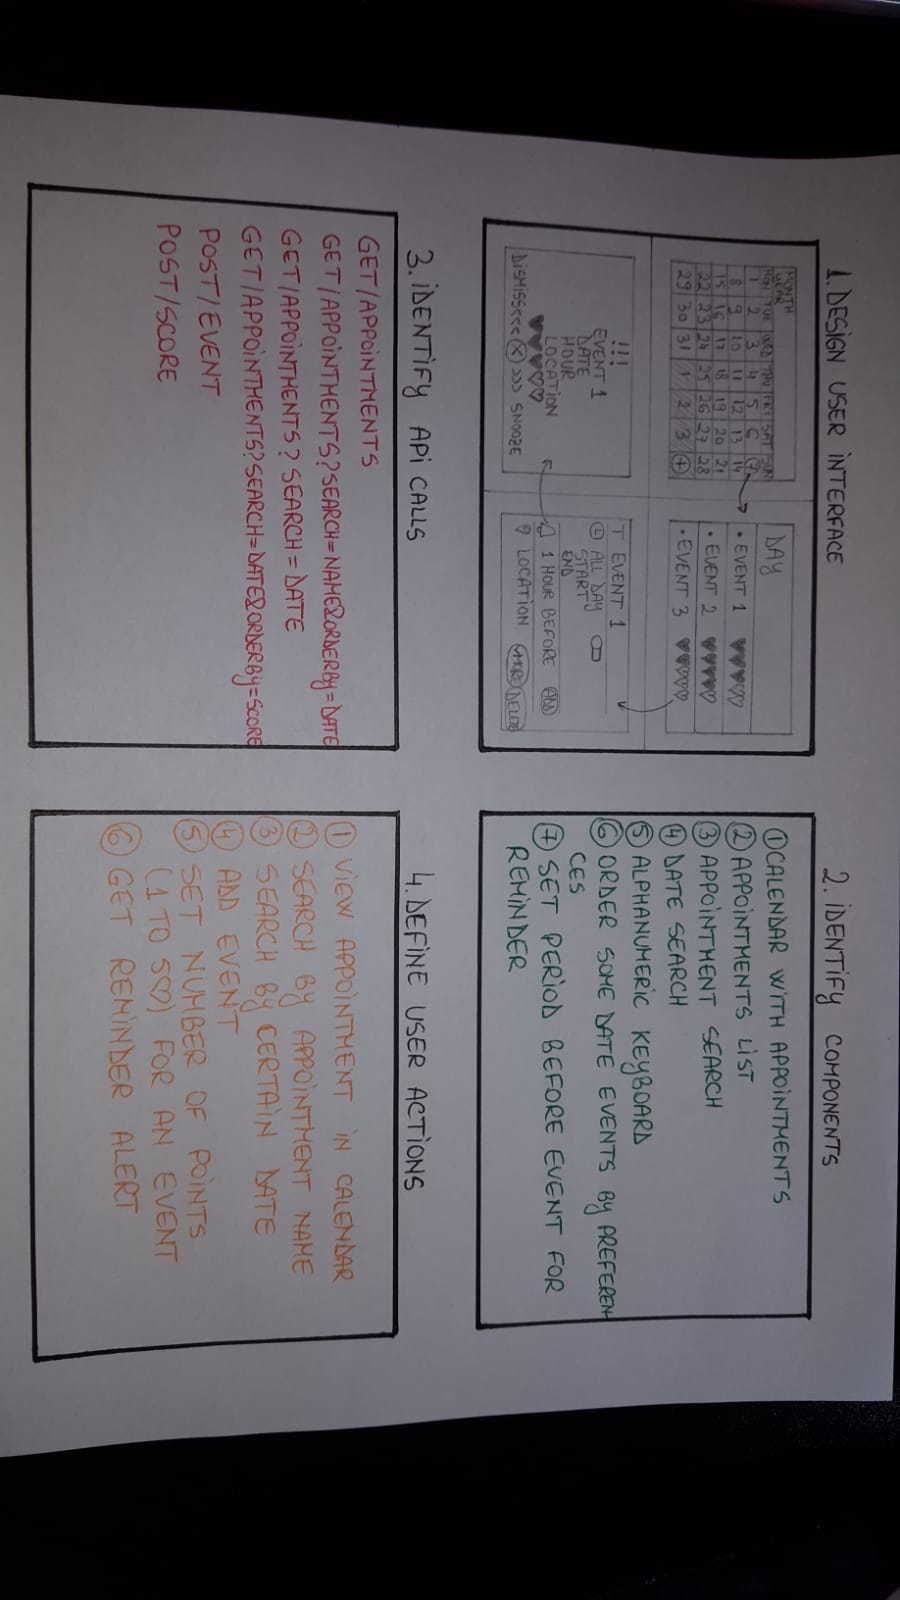 1. DESIGN USER INTERFACE
MONTH
YEAR
MON TUE WED THU FRI SAT SUN
1 2 3 4 5 6 7
8 9 10 11 12 13 14
15 16 17 18 19 20 21
22 23 24 25 26 27 28
29 30 31 1 2 3 +
DAY
• EVENT 1 ♥♥♥♡♡
• EVENT 2 ♥♥♥♥♡
• EVENT 3 ♥♥♡♡♡
!!!
EVENT 1
DATE
HOUR
LOCATION
♥♥♥♡♡
DISMISS<<< X >>> SNOOZE
T EVENT 1
ALL DAY
START
END
1 HOUR BEFORE ADD
LOCATION MORE DELETE
2. IDENTIFY COMPONENTS
① CALENDAR WITH APPOINTMENTS
② APPOINTMENTS LIST
③ APPOINTMENT SEARCH
④ DATE SEARCH
⑤ ALPHANUMERIC KEYBOARD
⑥ ORDER SOME DATE EVENTS BY PREFEREN-
CES
⑦ SET PERIOD BEFORE EVENT FOR
REMINDER
3. IDENTIFY API CALLS
GET/APPOINTMENTS
GET/APPOINTMENTS?SEARCH=NAME&ORDERBY=DATE
GET/APPOINTMENTS? SEARCH = DATE
GET/APPOINTMENTS?SEARCH=DATE&ORDERBY=SCORE
POST/EVENT
POST/SCORE
4. DEFINE USER ACTIONS
① VIEW APPOINTMENT IN CALENDAR
② SEARCH BY APPOINTMENT NAME
③ SEARCH BY CERTAIN DATE
④ ADD EVENT
⑤ SET NUMBER OF POINTS
(1 TO 5♡) FOR AN EVENT
⑥ GET REMINDER ALERT